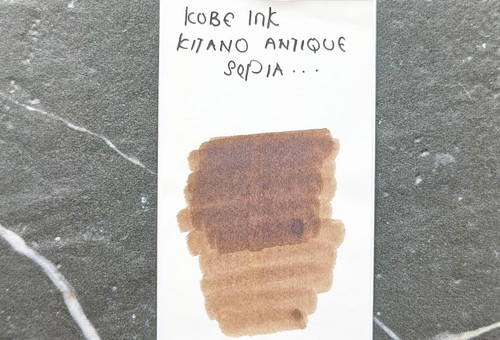 KOBE Ink
KITANO ANTIQUE
SEPIA...